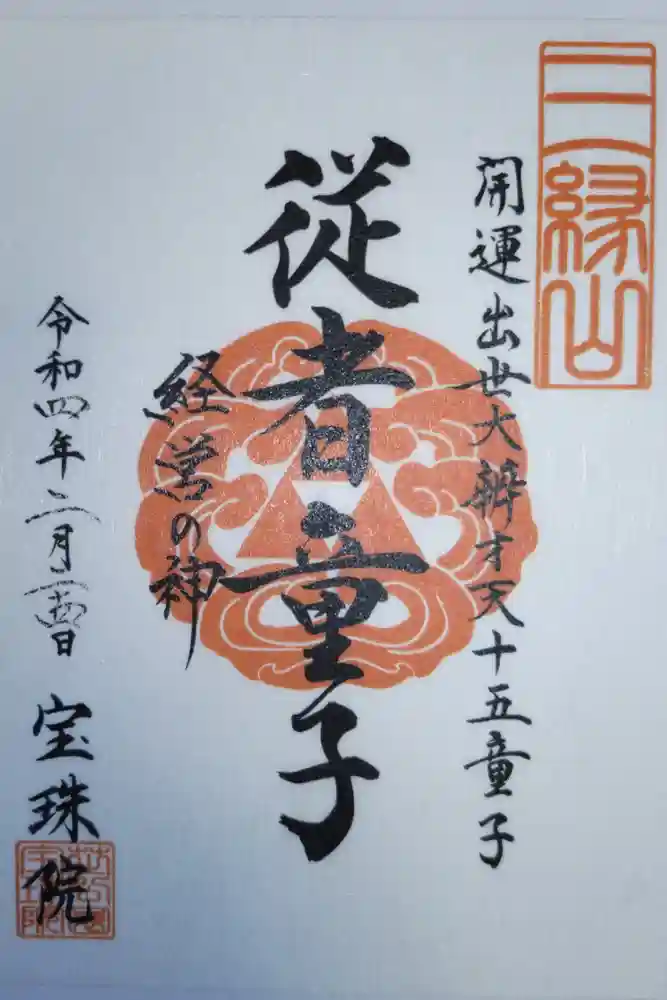 三縁山
開運出世大辨才天十五童子
従者童子
経営の神
令和四年二月二十四日
宝珠院